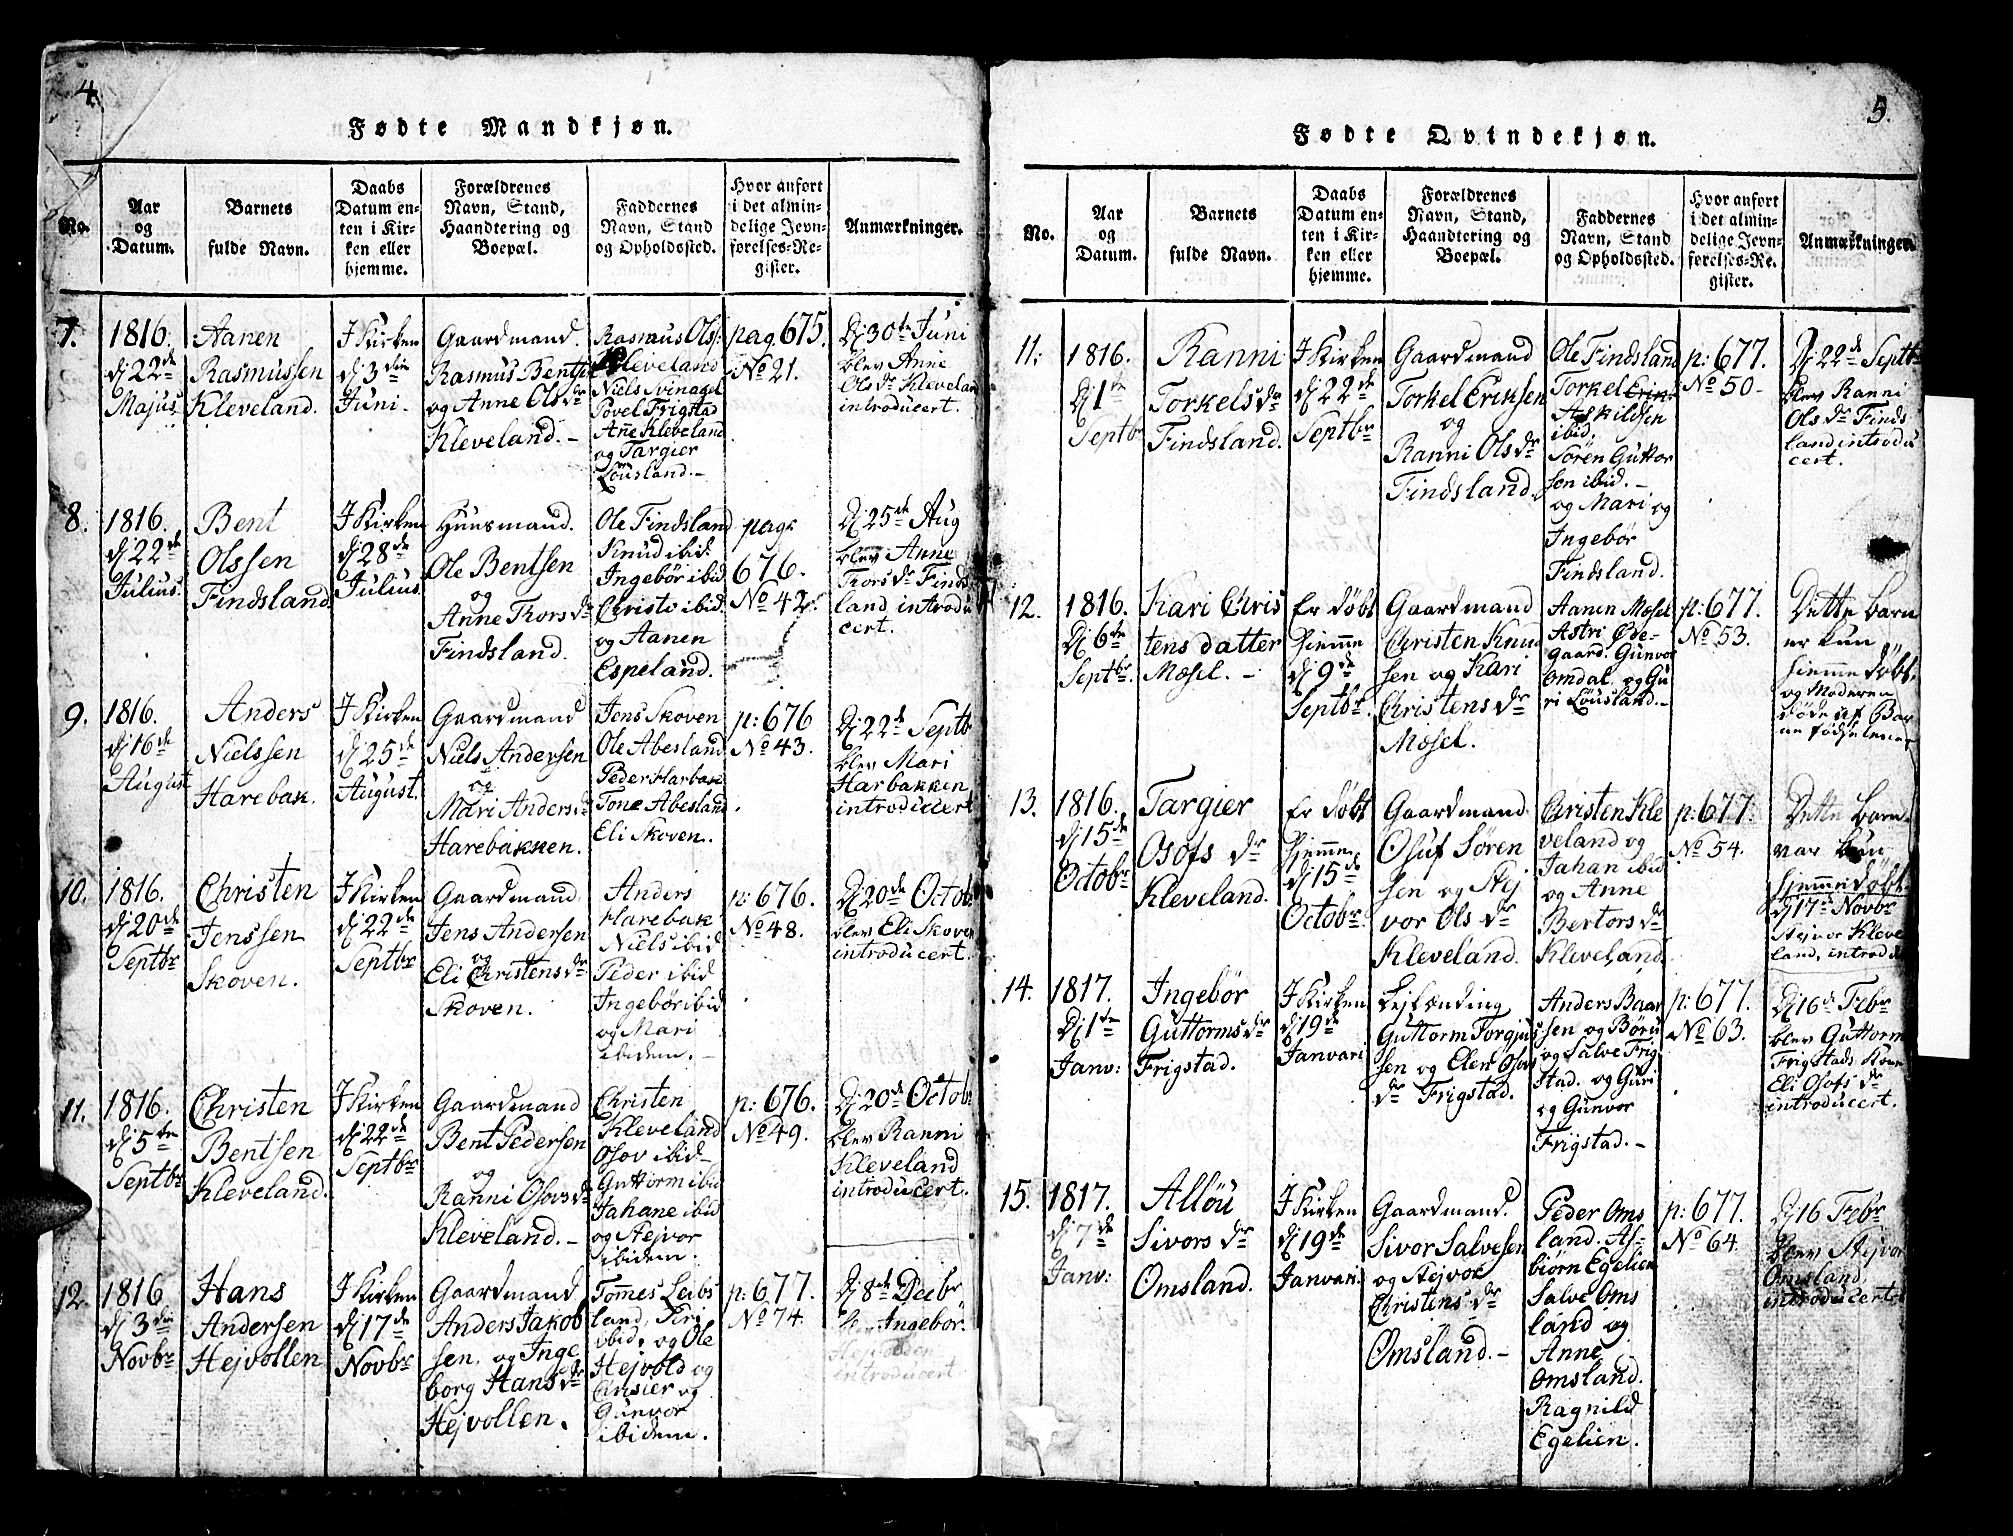 4.
Fødte Mandkjøn.
No.
Aar
og
Datum.
Barnets
fulde Navn.
Daabs
Datum en-
ten i Kir-
ken eller
hjemme.
Forældrenes
Navn, Stand,
Haandtering og
Boepæl.
Faddernes
Navn, Stand
og Opholdssted.
Hvor anført
i det almin-
delige Jevn-
førelses-Re-
gister.
Anmærkninger.
7.
1816.
dj 22de
Majus
Aanen
Rasmussen
Kleveland.
I Kirken
dj 3die
Juni.
Gaardmand.
Rasmus Bentsen
og Anne Olsdr
Kleveland.-
Rasmus Ols:
Kleveland
Niels
Povel Frigstad
Anne Kleveland
og Targier
Löusland.-
pag. 675.
No 21.
Dj 30te Juni
blev Anne
Ols dr Klevelan
introducert.
8.
1816.
dj 22de
Julius.
Bent
Olssen
Findsland.
I Kirken
dj 28de
Julius.
Huusmand.
Ole Bentsen
og
Anne Thorsdr
Findsland.
Ole Findsland
Knud ibid.
Ingebör ibid
Christo ibid.
og Aanen
Espeland.
pag:
676.
No 42.
Dj 25de Aug
blev Anne
Thors dr Finds
land introdu
cert.
9.
1816.
dj 16de
August
Anders
Nielssen
Harebak.
I Kirken
dj 25de
August.
Gaardmand
Niels Andersen
og
Mari Andersdr
Harebakken.
Jens Skoven
Ole Abesland
Peder Harbak
Tone Abesland
Eli Skoven.
p: 676
No 43.
Dj 22de Septb
blev Mari
Harbakken
introducert
10.
1816.
dj 20de
Septbr
Christen
Jenssen
Skoven.
I Kirken
dj 22de
Septbr
Gaardmand.
Jens Andersen
og
Eli Christensdr
Skoven.
Anders
Harebak
Niels ibid
Peder ibid
Ingebör ibid
og Mari
ibidem.-
p: 676.
No 48.
Dj 20de Octob.
blev Eli Skoven
introducert.
11.
1816.
dj 5te
Septbr
Christen
Bentsen
Kleveland.
I Kirken
dj 22de
Septbr
Gaardmand
Bent Pedersen
og
Ranni Osovsdr
Kleveland.-
Christen
Kleveland
Osov ibid-
Guttorm ibid
Jahane ibid
og Stejvor
ibidem.
p: 676.
No 49.
Dj 20de Octob
blev Ranni
Kleveland
introducert.
12.
1816
dj 3die
Novbr
Hans
Andersen
Hejvollen
I Kirken
dj 17de
Novbr
Gaardmand
Anders Jakob
sen, og Inge
borg Hansdr
Hejvollen.
Tomes Leibs
land, Siri
ibid. og Ole
Hejvold og
og
Gunvor
ibidem.
p: 677.
No 74.
Dj 8de Decbr
blev Ingebör
Hejvolden
introducert.
5.
Fødte Qvindekjøn.
No.
Aar
og
Datum.
Barnets
fulde Navn.
Daabs
Datum en-
ten i Kir-
ken eller
hjemme.
Forældrenes
Navn, Stand,
Haandtering og
Boepæl.
Faddernes
Navn, Stand
og Opholdssted.
Hvor anført
i det almin-
delige Jevn-
førelses-Re-
gister.
Anmærkninger.
11:
1816.
Dj 1te
Septbr
Ranni
Torkelsdr
Findsland.
I Kirken
dj 22de
Septbr
Gaardmand
Torkel Eriksen
og
Ranni Olsdr
Findsland.
Ole Findsland
Torkel Erik-
Askildsen
ibid.
Sören Guttor
sen ibid.-
og Mari og
Ingebör
Findsland.
p: 677.
No 50-
Dj 22de Septb
blev Ranni
Ols dr Finds
land introdu
cert.
12.
1816.
Dj 6te
Septbr.
Kari Chris
tens datter
Mosel.-
Er döbt
hjemme
dj 9de
Septbr.
Gaardmand
Christen Knud
sen og Kari
Christensdr
Mosel.
Aanen Mosel
Astri Øde-
gaard. Gunvor
Omdal, og Gu
ri Lòusland.-
p: 677.
No 53.
Dette barn
er kun
hjemme döbt,
og Moderen
döde af Bar
ne födselen
13.
1816.
dj 15de
Octobr
Targier
Osofs dr
Kleveland.
Er döbt
hjemme
dj 15de
Octobr.
Gaardmand.
Osuf Sören
sen og Stej
vor Ols dr
Kleveland.
Christen Kle
veland og
Jahan ibid
og Anne
Bertorsdr
Kleveland.
p: 677.
No 54.
Dette barn
var kun
hjemmedöbt.
dj 17de Novbr
Stejvor Kleve
land, introd
14.
1817.
Dj 1te
Janv:
Ingebör
Guttormsdr
Frigstad.
I Kirken
dj 19de
Janvari
Lejlænding
Guttorm Torgjus
sen og Elen Osovs
dr Frigstad.
Anders Baar
sen og Böru
og Salve Frig
stad. og Guri
og Gunvor
Frigstad.-
p: 677.
No 63.
Dj 16de Febr
blev Guttorm
Frigstads Kone
Eli Osofs dr
introducert.
15.
1817.
dj 7de
Janv:
Allöu
Sivors dr
Omsland.
I Kirken
dj 19de
Janvari.
Gaardmand.
Sivor Salvesen
og Stejvor
Christens dr
Omsland.-
Peder Oms
land. As-
biörn Egelien
Salve Oms
land og
Anne
Omsland.
Ragnild
Egelien.
p: 677.
No 64.
Dj 16 Febr
blev Stejvor
Omsland,
introducert